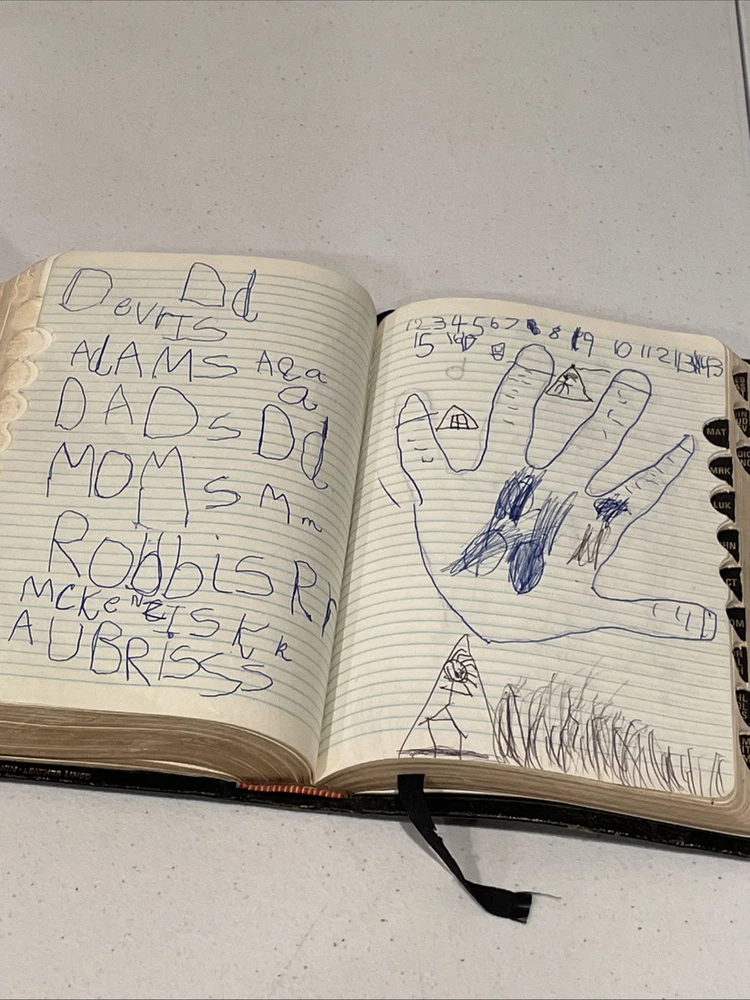 Dd
Devris
AdAMS Aaa
a
DADs Dd
MOMs Mm
Robbis Rr
McKenzis Kk
AUBRISSS
12 3 4 5 6 7 8 9 10 11 12 13
15
MAT
MRK
LUK